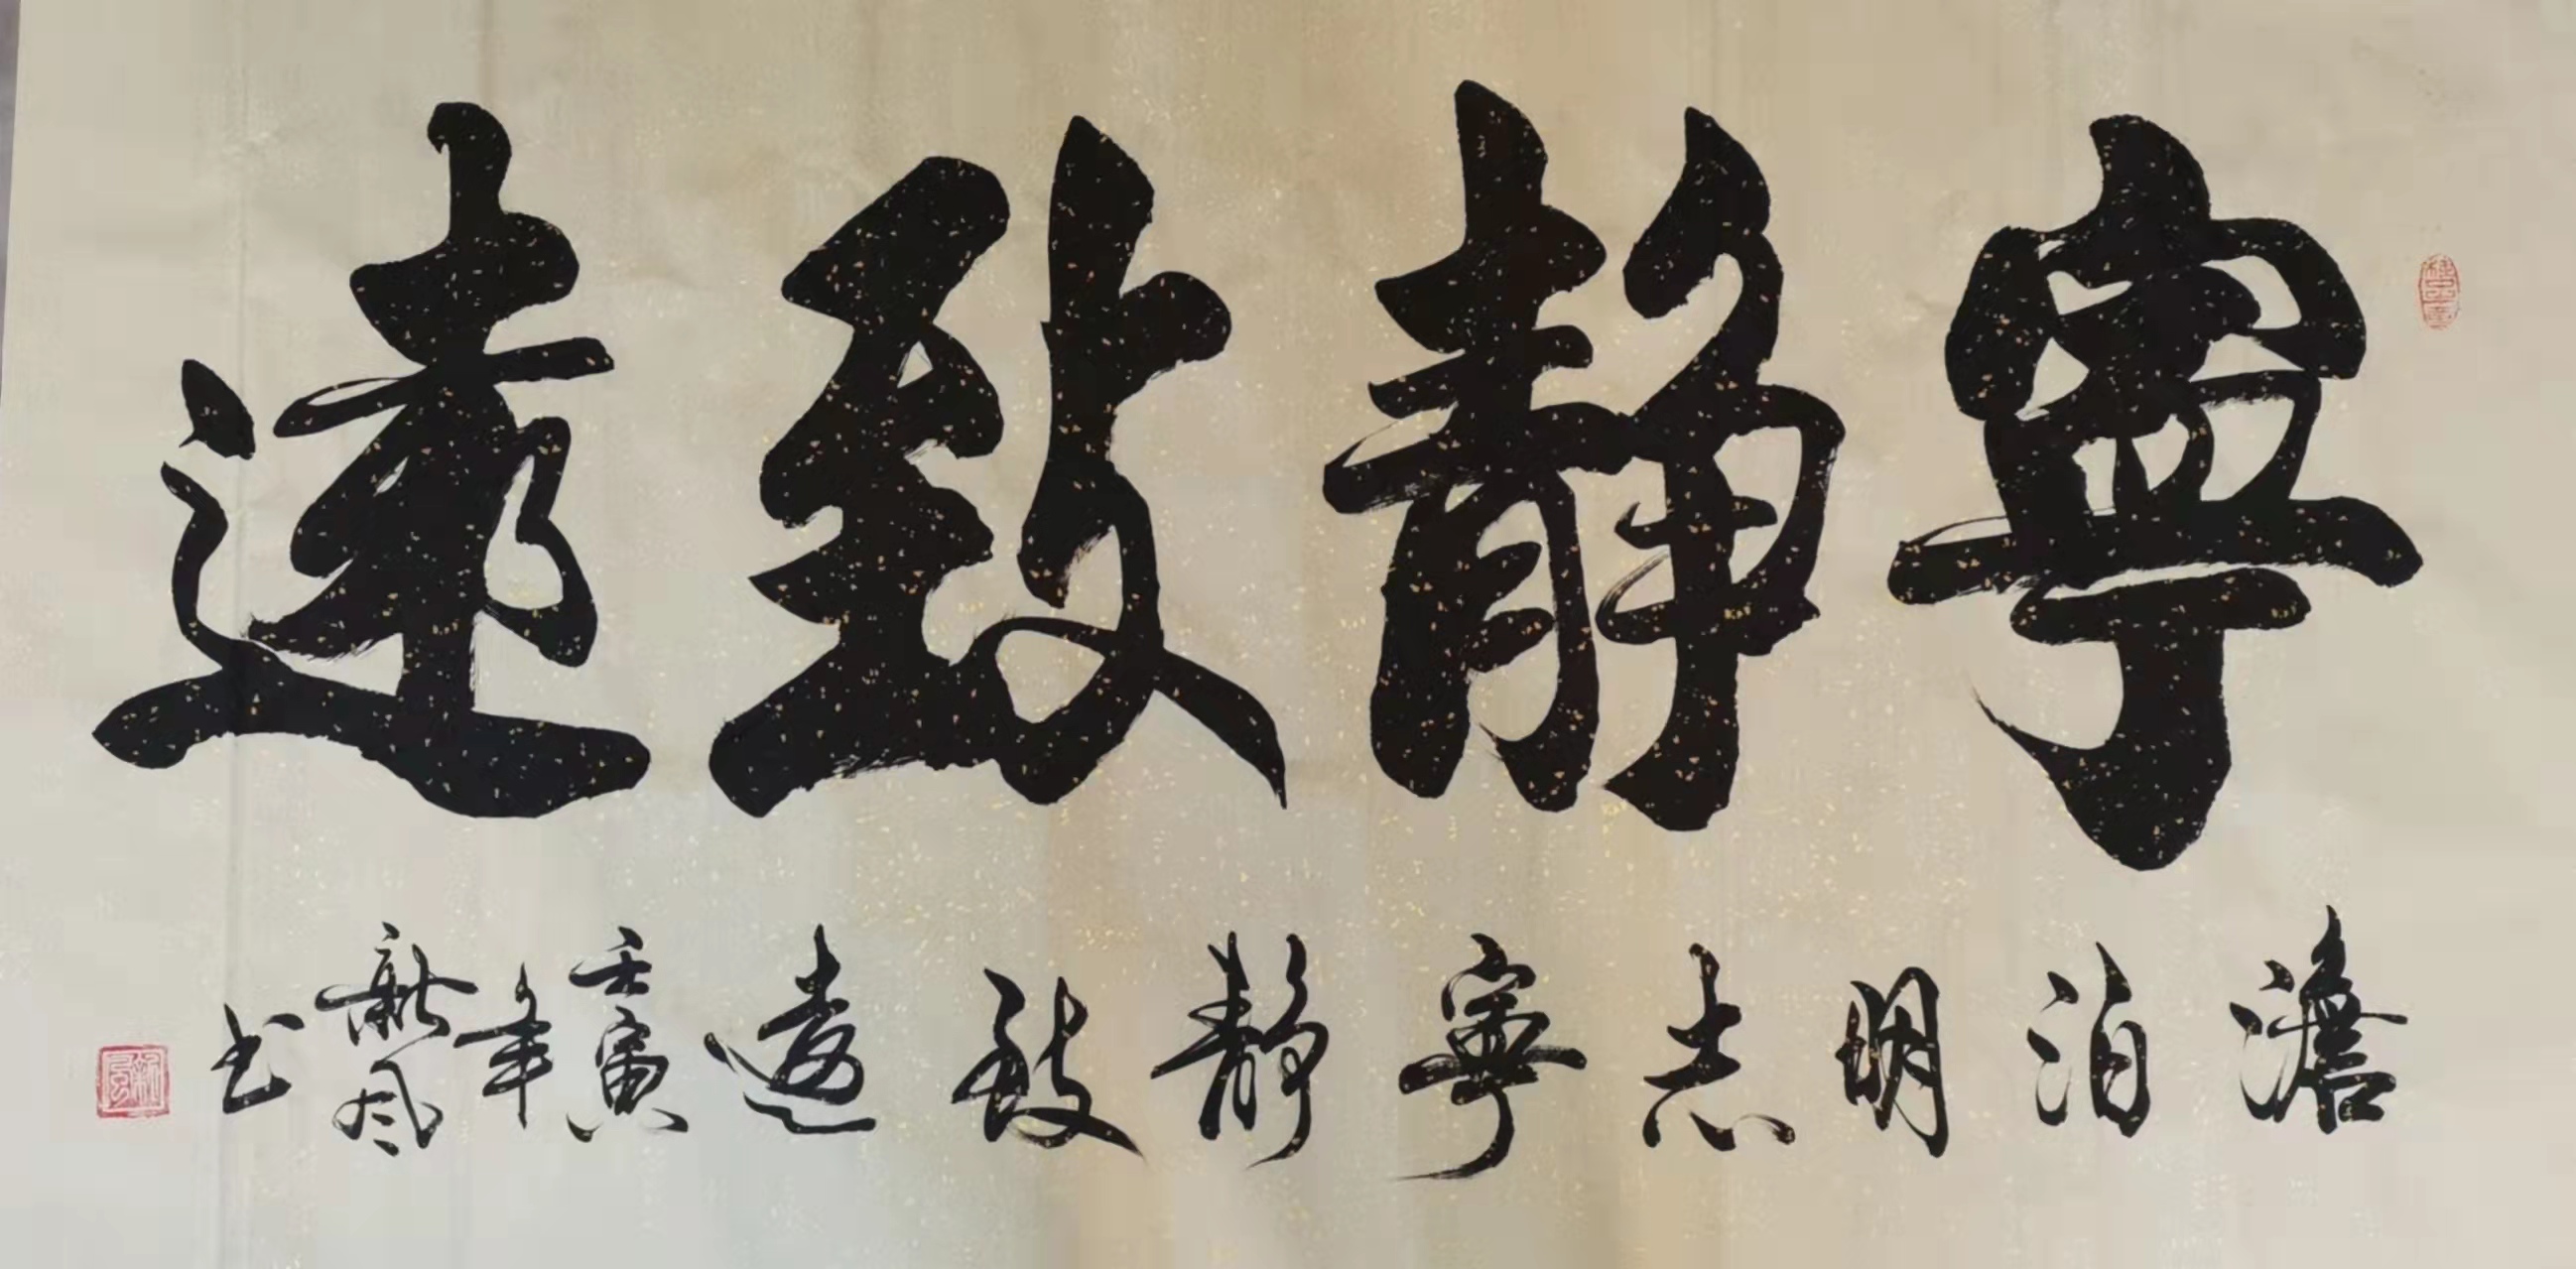 寧靜致遠
澹泊明志寧靜致遠
壬寅年新风书